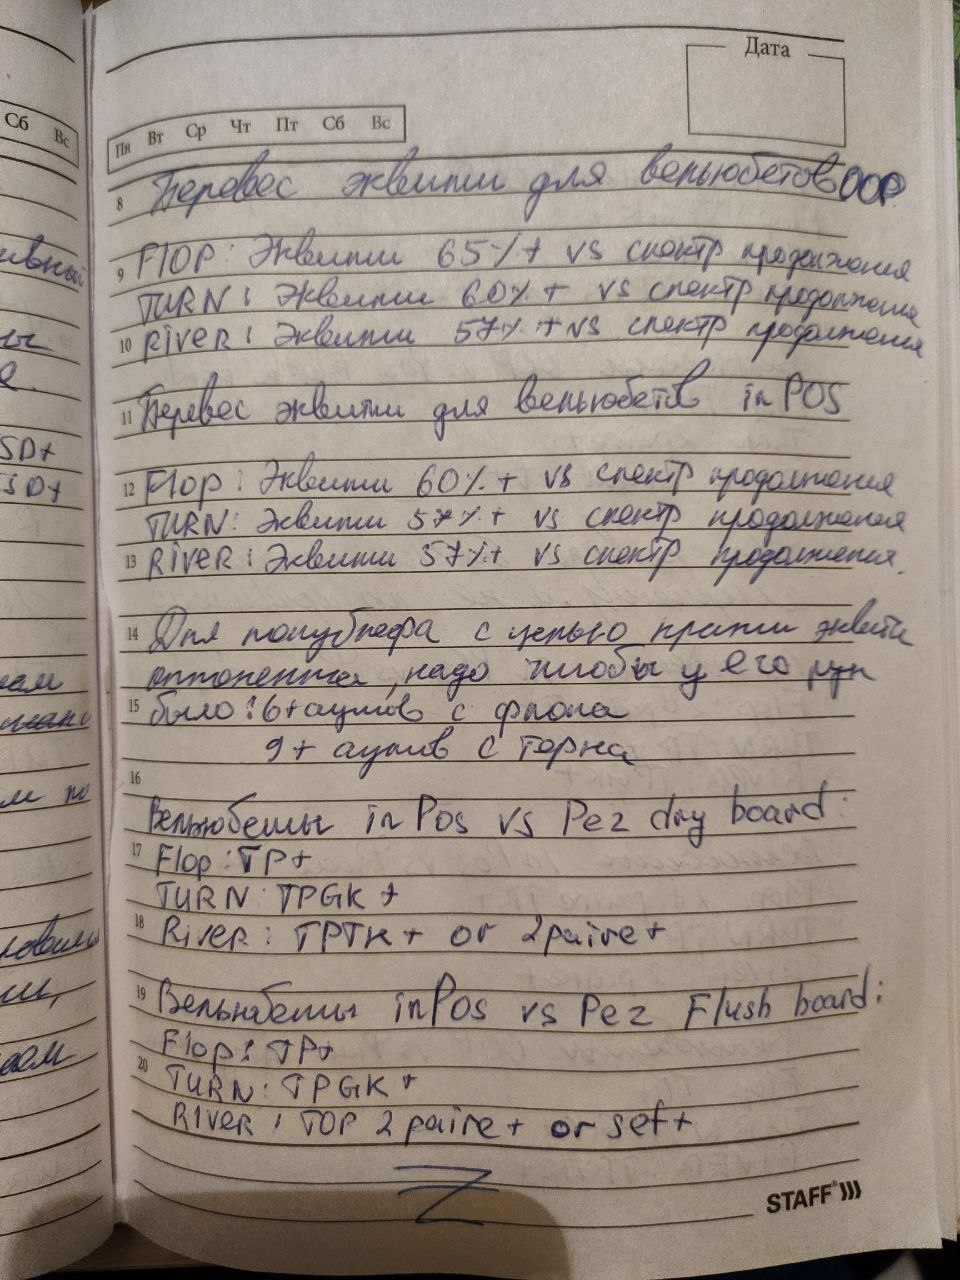 Дата
Сб Вс
Пн Вт Ср Чт Пт Сб Вс
8 Перевес эквити для вельюбетов OOP
9 FlOP: Эквити 65%+ vs спектр продолжения
TURN: Эквити 60%+ vs спектр продолжения
10 RiVER: Эквити 57%+ vs спектр продолжения
11 Перевес эквити для вельюбетов in POS
12 Flop: Эквити 60%+ vs спектр продолжения
TURN: Эквити 57%+ vs спектр продолжения
13 RiveR: Эквити 57%+ vs спектр продолжения.
14 Для полублефа с целью кражи эквити
оппонента, надо чтобы у его рук
15 было: 6+ аутов с флопа
9+ аутов с терна
16
Вельюбеты in Pos vs Рег dry board:
17 Flop: TP+
TURN: TPGK+
18 River: TPTK+ or 2paire+
19 Вельюбеты in Pos vs Рег Flush board:
Flop: TP+
20 TURN: TPGK+
RIVer: TOP 2 paire+ or set+
STAFF